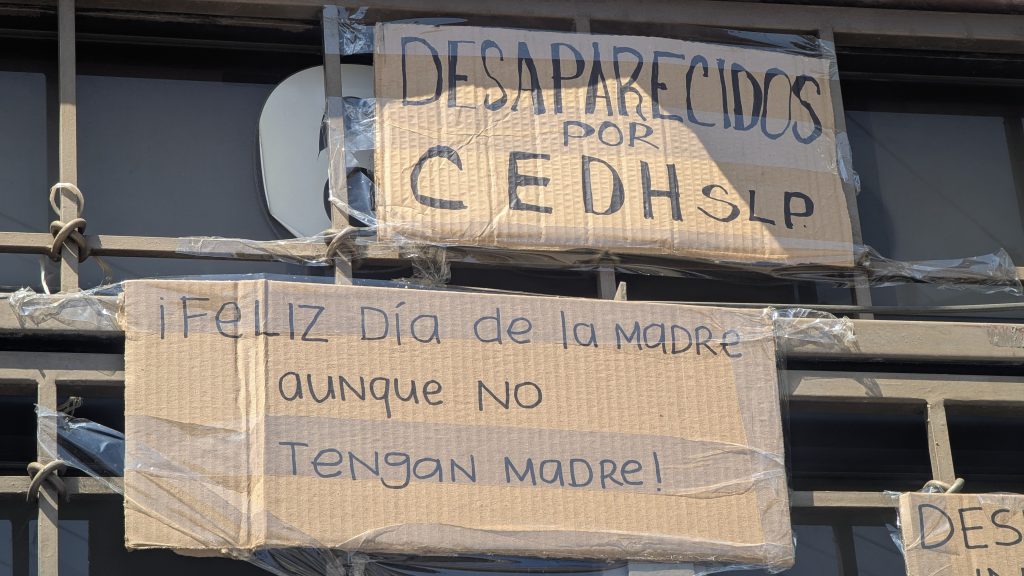 DESAPARECIDOS
POR
CEDH SLP.
¡FELIZ Día de la MADRE
aUNque NO
TENgAN MADRE!